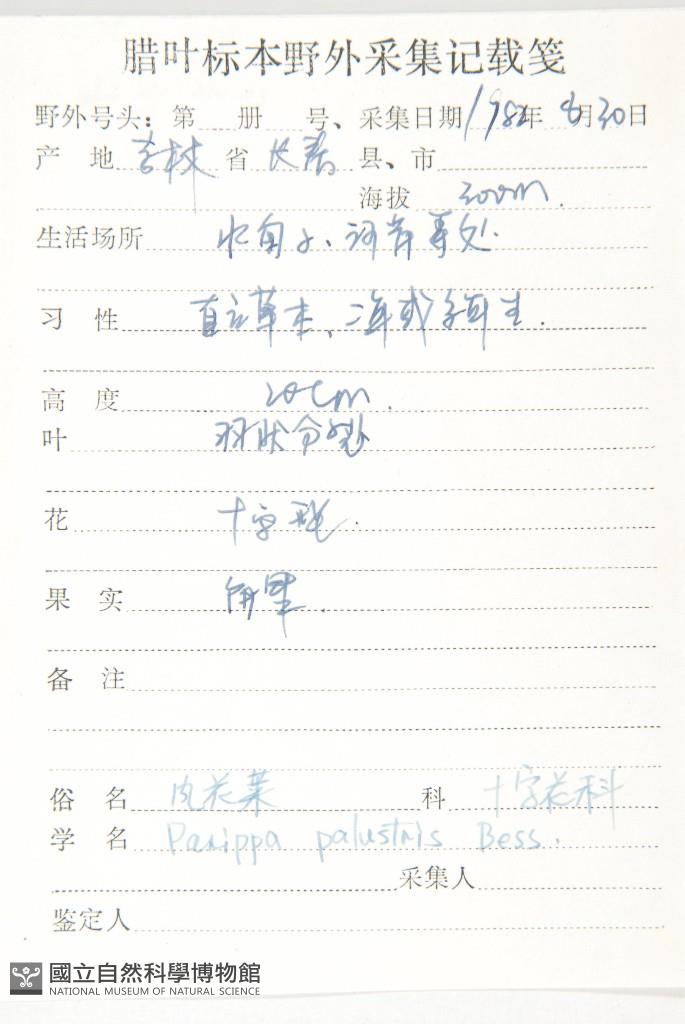 腊叶标本野外采集记载笺
野外号头：第 册 号、采集日期 1982年 8月30日
产 地 吉林 省 长春 县、市
海拔 200m.
生活场所 水甸子、河岸等处.
习 性 直立草本、二年或多年生.
高 度 20cm.
叶 羽状分裂
花 十字花.
果 实 角果.
备 注
俗 名 风花菜 科 十字花科
学 名 Parippa palustris Bess.
采集人
鉴定人
國立自然科學博物館
NATIONAL MUSEUM OF NATURAL SCIENCE